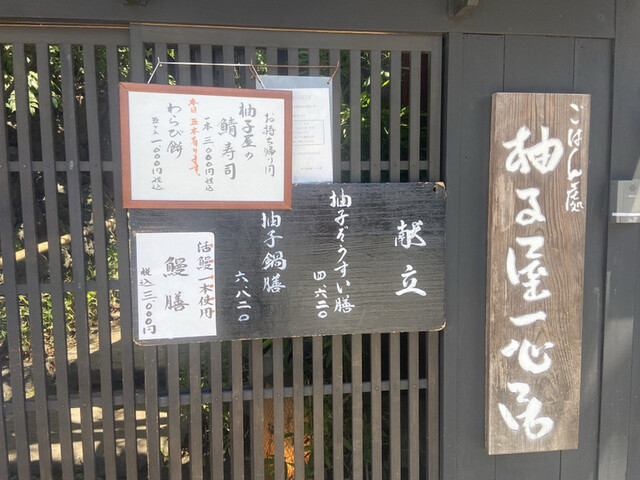 ごはん処
柚子屋一心居
献立
柚子ぞうすい膳
四、六二〇
柚子鍋膳
六、八二〇
活鰻一本使用
鰻膳
税込三〇〇〇円
お持ち帰り用
柚子屋の鯖寿司
一本三〇〇〇円税込
本日五本有ります。
わらび餅
一、〇〇〇円税込